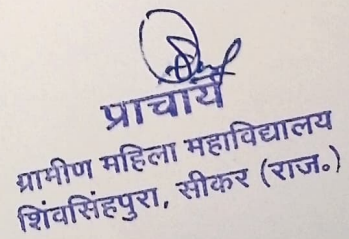 प्राचार्य
ग्रामीण महिला महाविद्यालय
शिवसिंहपुरा, सीकर (राज॰)